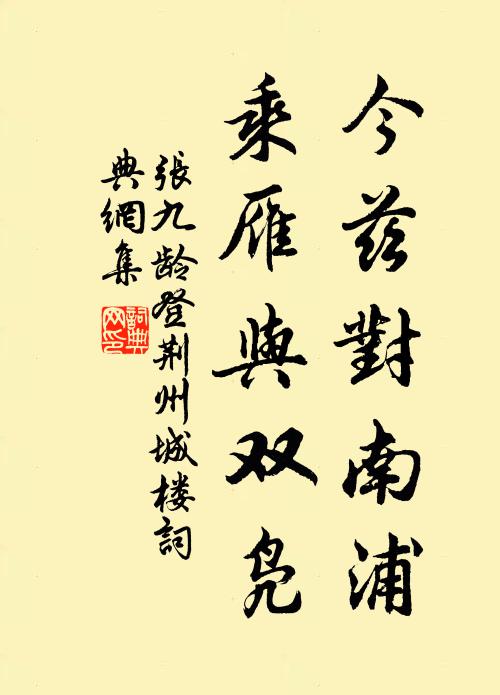 今茲對南浦
乘雁與双凫
張九龄登荆州城楼詞
典網集
詞典網印